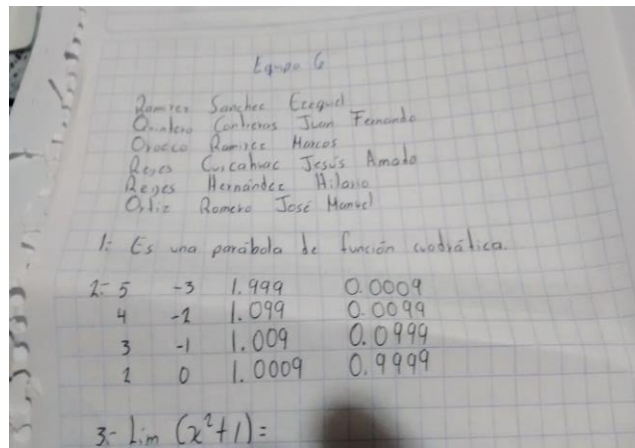 Equipo 6
Ramirez Sanchez Ezequiel
Quintero Contreras Juan Fernando
Orozco Ramirez Marcos
Reyes Jesús Amado
Reyes Hernández Hilario
Ortiz Romero José Manuel
1: Es una parábola de función cuadrática.
2.- 5 -3 1.999 0.0009
4 -2 1.099 0.0099
3 -1 1.009 0.0999
2 0 1.0009 0.9999
3.- Lim (x²+1)=